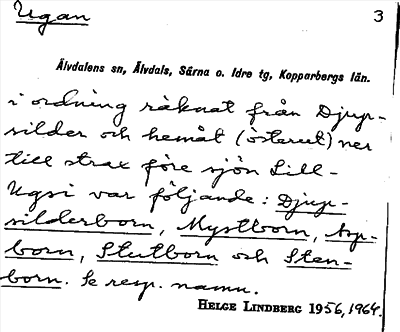 Ugan
3
Älvdalens sn, Älvdals, Särna o. Idre tg, Kopparbergs län.
i ordning räknat från Djup-
silder och hemåt (österut) ner
till strax före sjön Lill-
Ugsi var följande: Djup-
silderborn, Mystborn, Asp-
born, Stutborn och Sten-
born. Se resp. namn.
HELGE LINDBERG 1956, 1964.